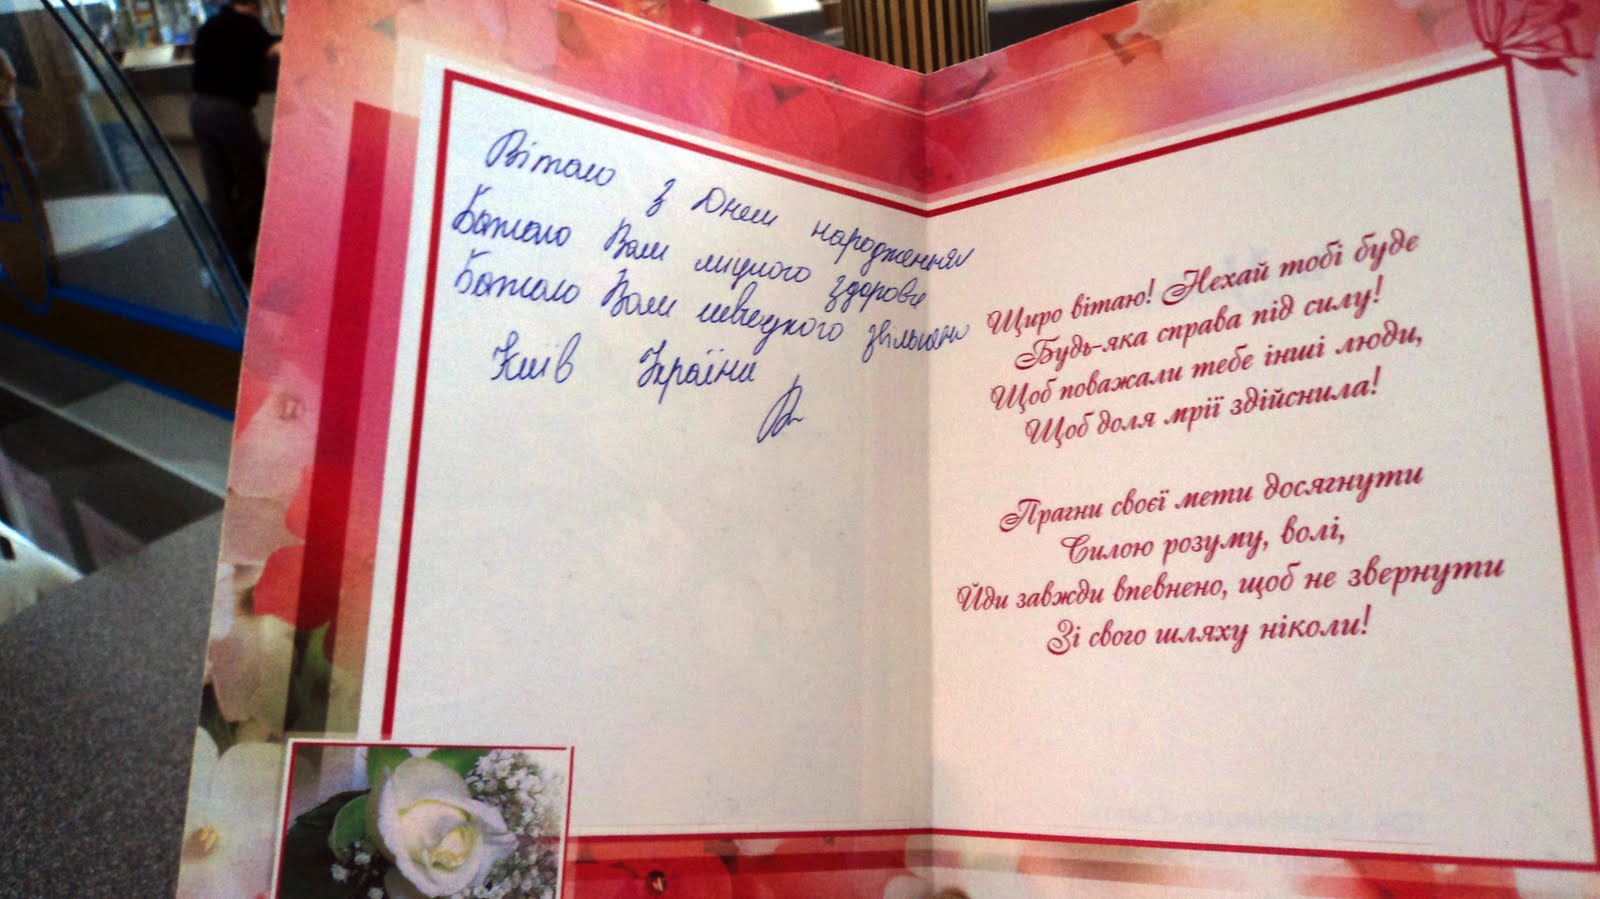 Вітаю з Днем народження
Бажаю Вам міцного здоровя
Бажаю Вам швидкого звільнення
Київ Україна
Щиро вітаю! Нехай тобі буде
Будь-яка справа під силу!
Щоб поважали тебе інші люди,
Щоб доля мрії здійснила!
Прагни своєї мети досягнути
Силою розуму, волі,
Йди завжди впевнено, щоб не звернути
Зі свого шляху ніколи!